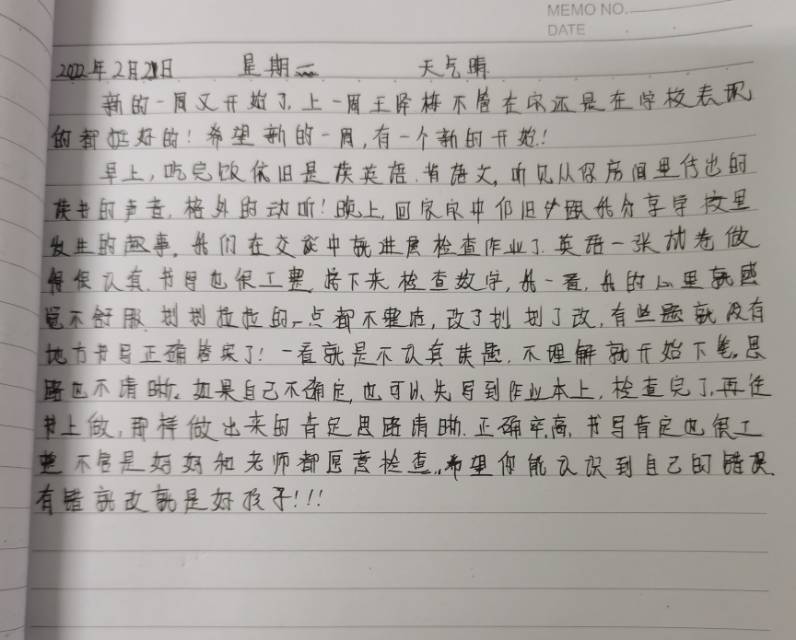 MEMO NO.
DATE
2022年2月21日 星期一 天气晴
新的一周又开始了,上一周王泽梅不管在家还是在学校表现
的都挺好的!希望新的一周,有一个新的开始!
早上,吃完饭依旧是读英语.背语文,听见从你房间里传出的
读书的声音,格外的动听!晚上,回家家中你旧跟我分享学校里
发生的趣事,我们在交谈中就进展检查作业了.英语一张试卷做
得很认真.书写也很工整,接下来检查数学,我一看,我的心里就感
觉不舒服.划划拉拉的一点都不整洁,改了划划了改,有些题就没有
地方书写正确答案了!一看就是不认真读题.不理解就开始下笔.思
路也不清晰.如果自己不确定,也可以先写到作业本上,检查完了,再往
书上做,那样做出来的肯定思路清晰.正确率高,书写肯定也很工
整 不管是妈妈和老师都愿意检查..希望你能认识到自己的错误
有错就改就是好孩子!!!